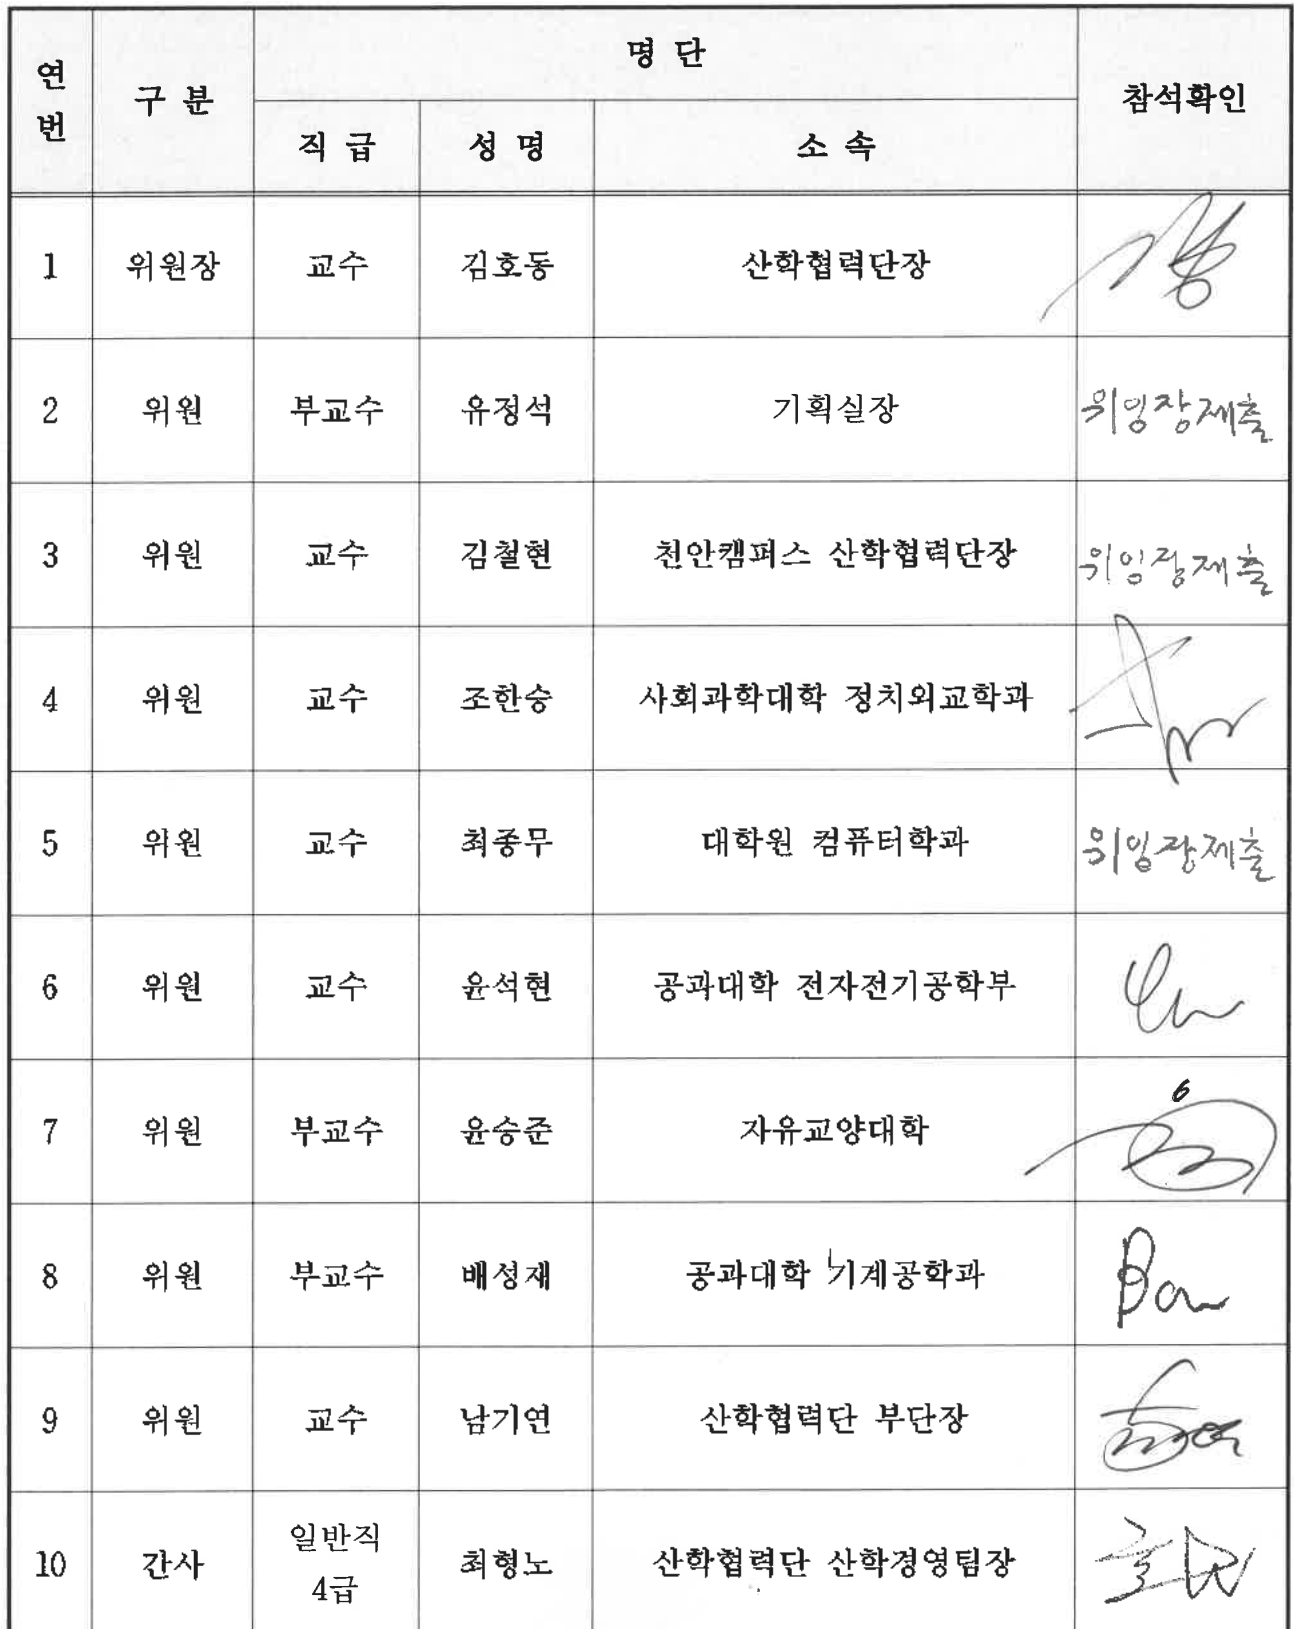 연번 구 분 명 단 참석확인
직 급 성 명 소 속
1 위원장 교수 김호동 산학협력단장
2 위원 부교수 유정석 기획실장 위임장제출
3 위원 교수 김철현 천안캠퍼스 산학협력단장 위임장제출
4 위원 교수 조한승 사회과학대학 정치외교학과
5 위원 교수 최종무 대학원 컴퓨터학과 위임장제출
6 위원 교수 윤석현 공과대학 전자전기공학부
7 위원 부교수 윤승준 자유교양대학
8 위원 부교수 배성재 공과대학 기계공학과
9 위원 교수 남기연 산학협력단 부단장
10 간사 일반직 4급 최형노 산학협력단 산학경영팀장